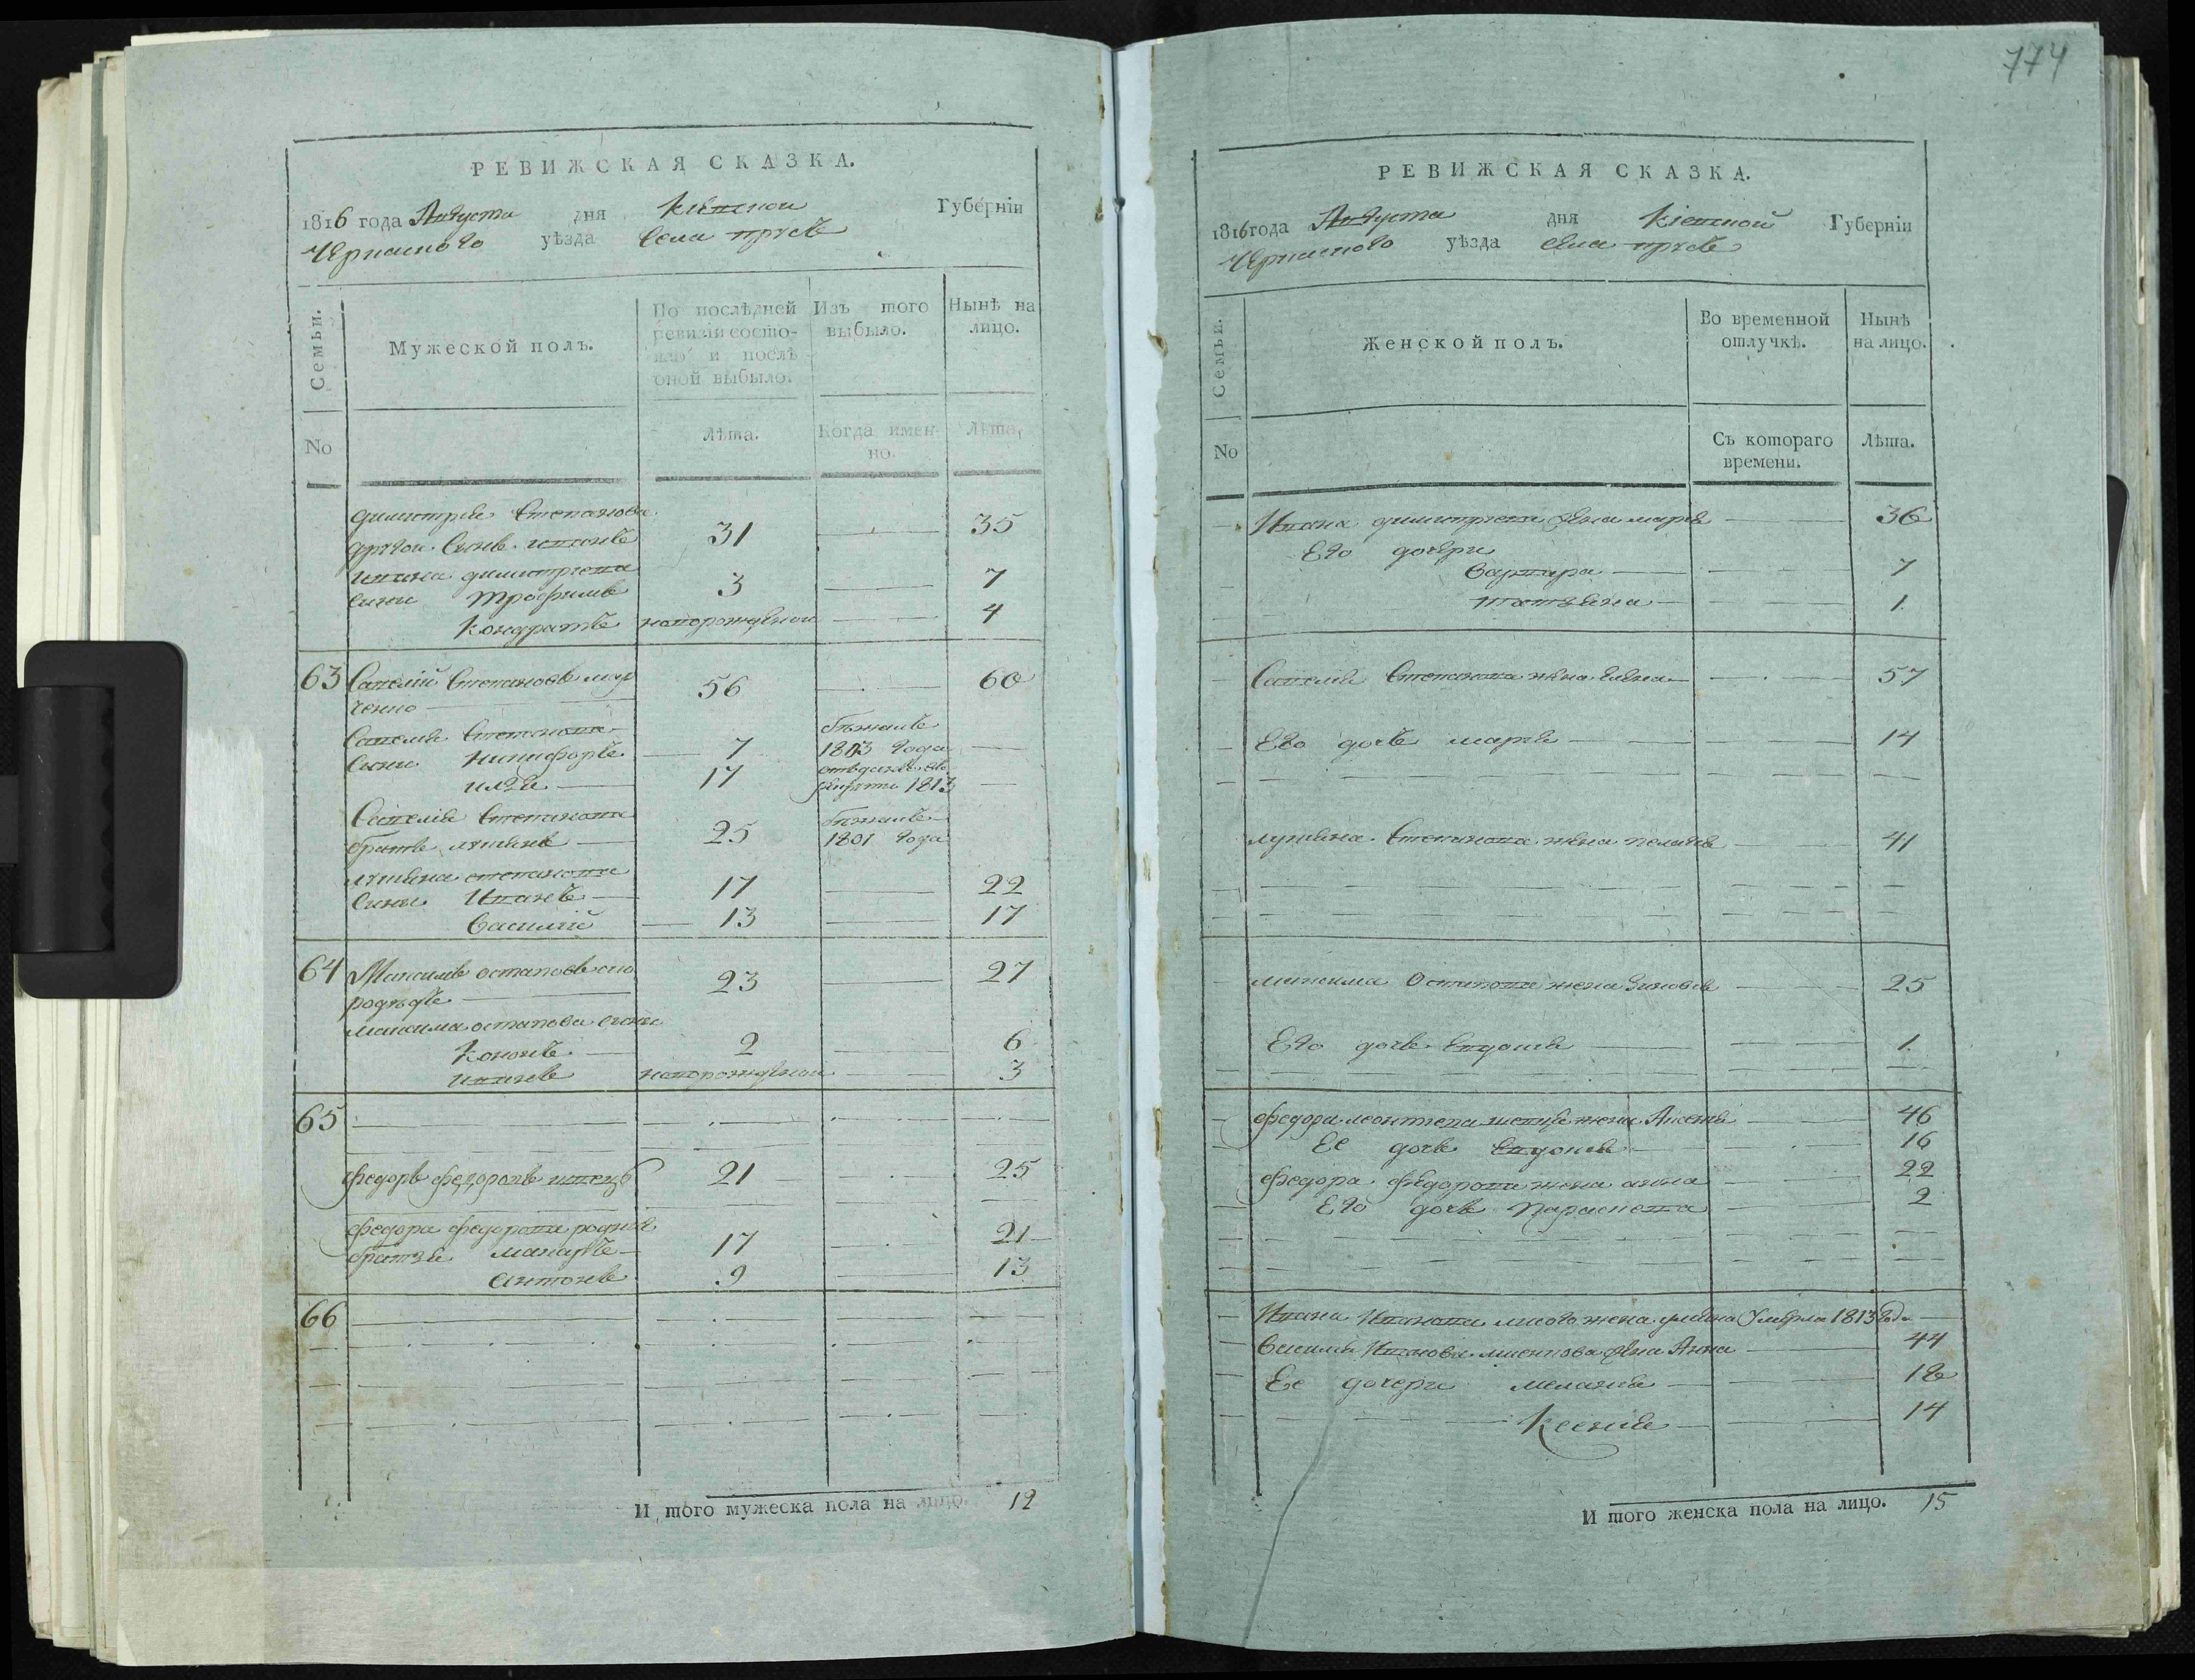 774
РЕВИЖСКАЯ СКАЗКА.
1816 года Августа дня Кіевской Губерніи
Черкаского уѣзда села
Семьи.
Мужеской полъ.
По послѣдней ревизіи состояло и послѣ оной выбыло.
Изъ того выбыло.
Нынѣ на лицо.
No
Лѣта.
Когда именно.
Лѣта.
Димитрія Степанова
другои сынъ иванъ 31 35
ивана димитріева
сыны трофимъ 3 7
кондратъ новорожденои 4
63 Савелій Степановъ 56 60
Савелія Степанова бѣжалъ
сыны никифоръ 7 1803 года
илія 17 отъданъ въ рекруты 1813
Савелія Степанова бѣжалъ
братъ лукянъ 25 1801 года
лукяна степанова
сыны Иванъ 17 22
василій 13 17
64 Максимъ остаповъ 23 27
максима остапова сыны
кононъ 2 6
иванъ новорожденои 3
65
федоръ федоровъ швець 21 25
федора федорова родние
братья макаръ 17 21
антонъ 9 13
66
И того мужеска пола на лицо. 12
РЕВИЖСКАЯ СКАЗКА.
1816 года Августа дня Кіевской Губерніи
Черкаского уѣзда села
Семьи.
Женской полъ.
Во временной отлучкѣ.
Нынѣ на лицо.
No
Съ котораго времени.
Лѣта.
Ивана димитріева жена марія 36
Его дочери
варвара 7
татіяна 1
Савелія Степанова жена елена 57
Его дочь марія 14
лукяна Степанова жена пелагія 41
максима Остапова жена зиновія 25
Его дочь Евдокія 1
федора леонтева швеця жена Аксенія 46
Ее дочь Евдокія 16
федора федорова жена анна 22
Его дочь Параскева 2
Ивана Иванова жена уляна Умерла 1813 года
василія Иванова жена Анна 44
Ее дочери меланія 18
Ксенія 14
И того женска пола на лицо. 15